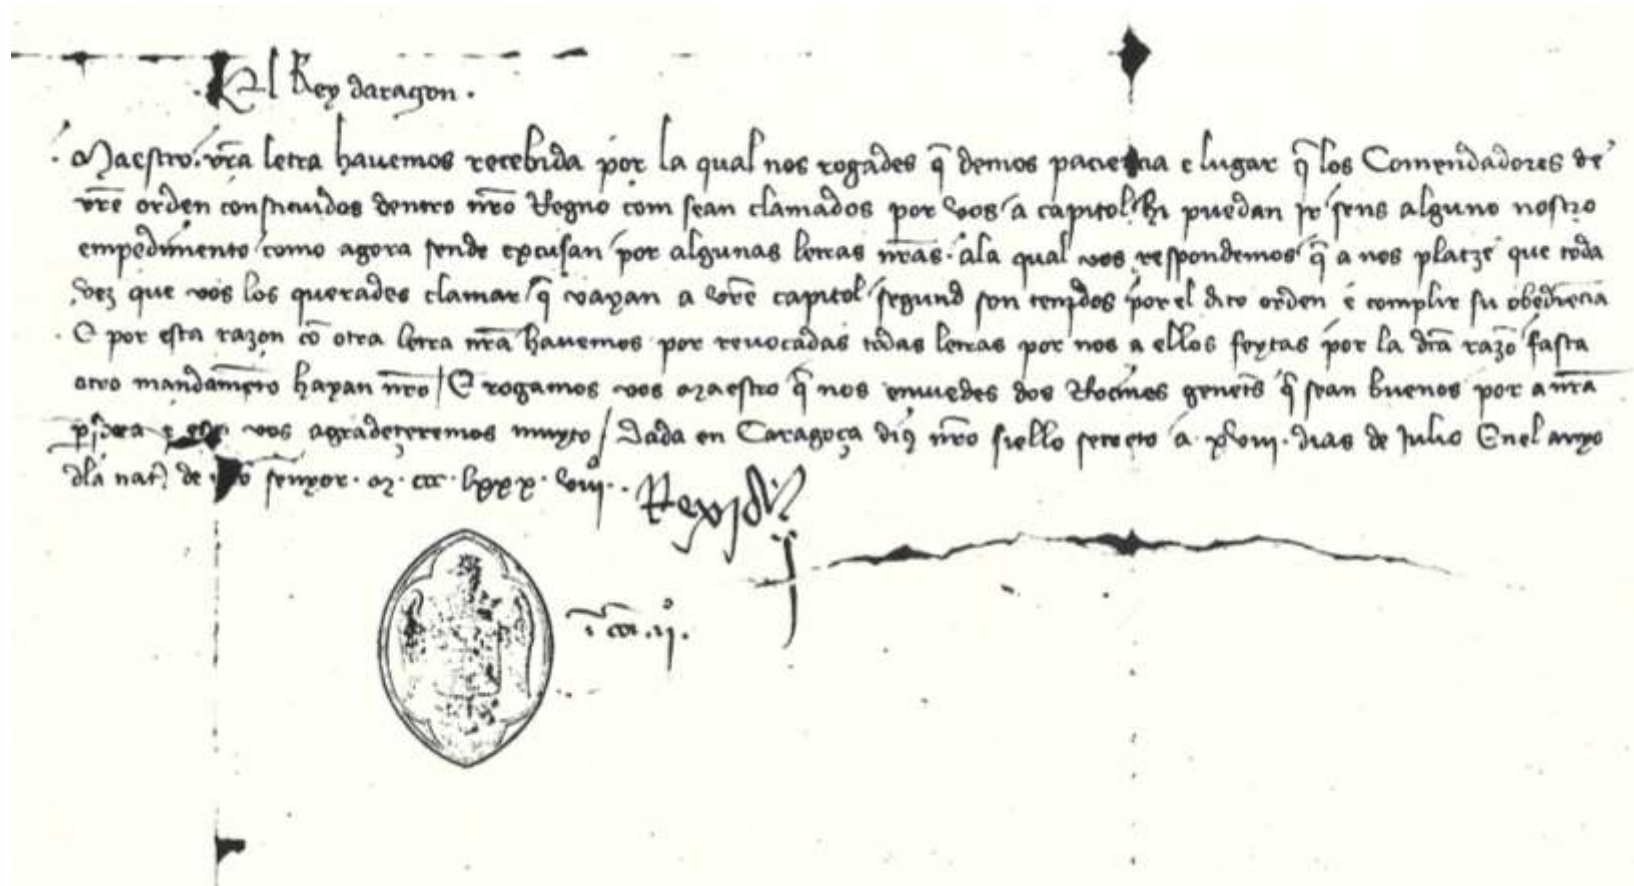 El Rey daragon.
Maestro. vr̃a letra havemos recebida por la qual nos rogades q̃ demos paciencia e lugar q̃ los Comendadores de
vr̃e orden constituidos dentro nr̃o Regno com sean clamados por vos a capitol hi puedan jr sens alguno nostro
empediment̃o como agora sende excusan por algunas letras nr̃as. ala qual vos respondemos q̃ a nos platze que toda
vez que vos los querades clamar q̃ vayan a vr̃e capitol segund son tenjdos por el dito orden e complir su obediẽcia
E por esta razon cõ otra letra nr̃a havemos por revocadas todas letras por nos a ellos feytas por la dr̃a razõ fasta
otro mandamẽto hayan nr̃o / E rogamos vos maestro q̃ nos enviedes dos Rocines genet̃s q̃ sean buenos por a nr̃a
vos agradeçeremos muyto / Dada en Caragoça diũs nr̃o siello secreto a. xviii. dias de Julio Enel anyo
dla nat. de nr̃o senyor. m. ccc. lxxx. viii.. Rex